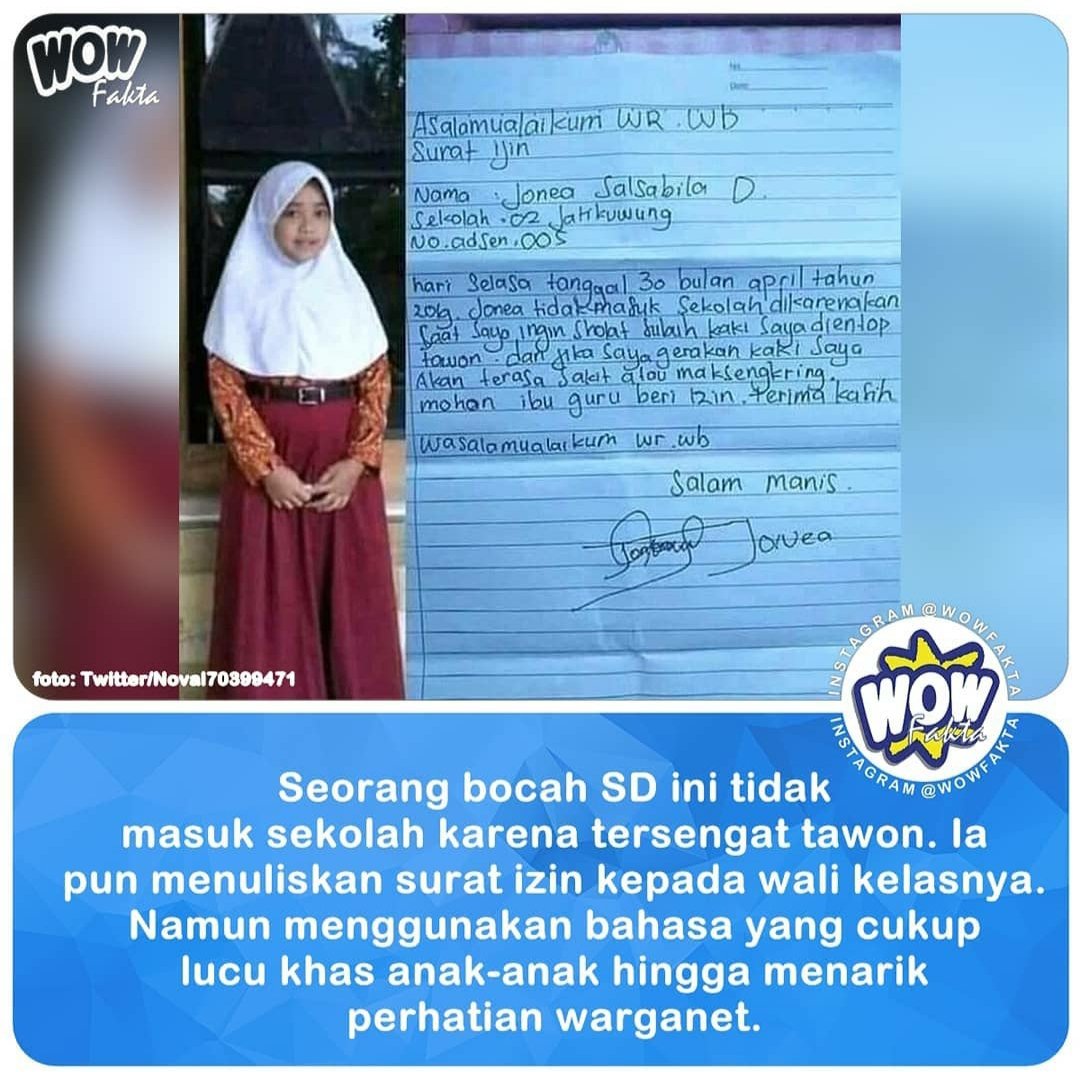 WOW
Fakta
No.
Date.
Asalamualaikum WR.Wb
Surat ijin
Nama : Jonea Salsabila D.
Sekolah . 02 Jatikuwung
No.adsen.005
hari Selasa tanggal 30 bulan april tahun
2019 Jonea tidak masuk sekolah dikarenakan
Saat saya ingin sholat subuih kaki saya dientop
tawon. dan jika saya gerakan kaki saya
Akan terasa sakit atau maksengkring.
mohan ibu guru beri Izin. terima kasih
Wasalamualaikum wr.wb
Salam manis.
Jonea
foto: Twitter/Noval70399471
INSTAGRAM @WOWFAKTA
WOW
Fakta
INSTAGRAM @WOWFAKTA
Seorang bocah SD ini tidak
masuk sekolah karena tersengat tawon. Ia
pun menuliskan surat izin kepada wali kelasnya.
Namun menggunakan bahasa yang cukup
lucu khas anak-anak hingga menarik
perhatian warganet.